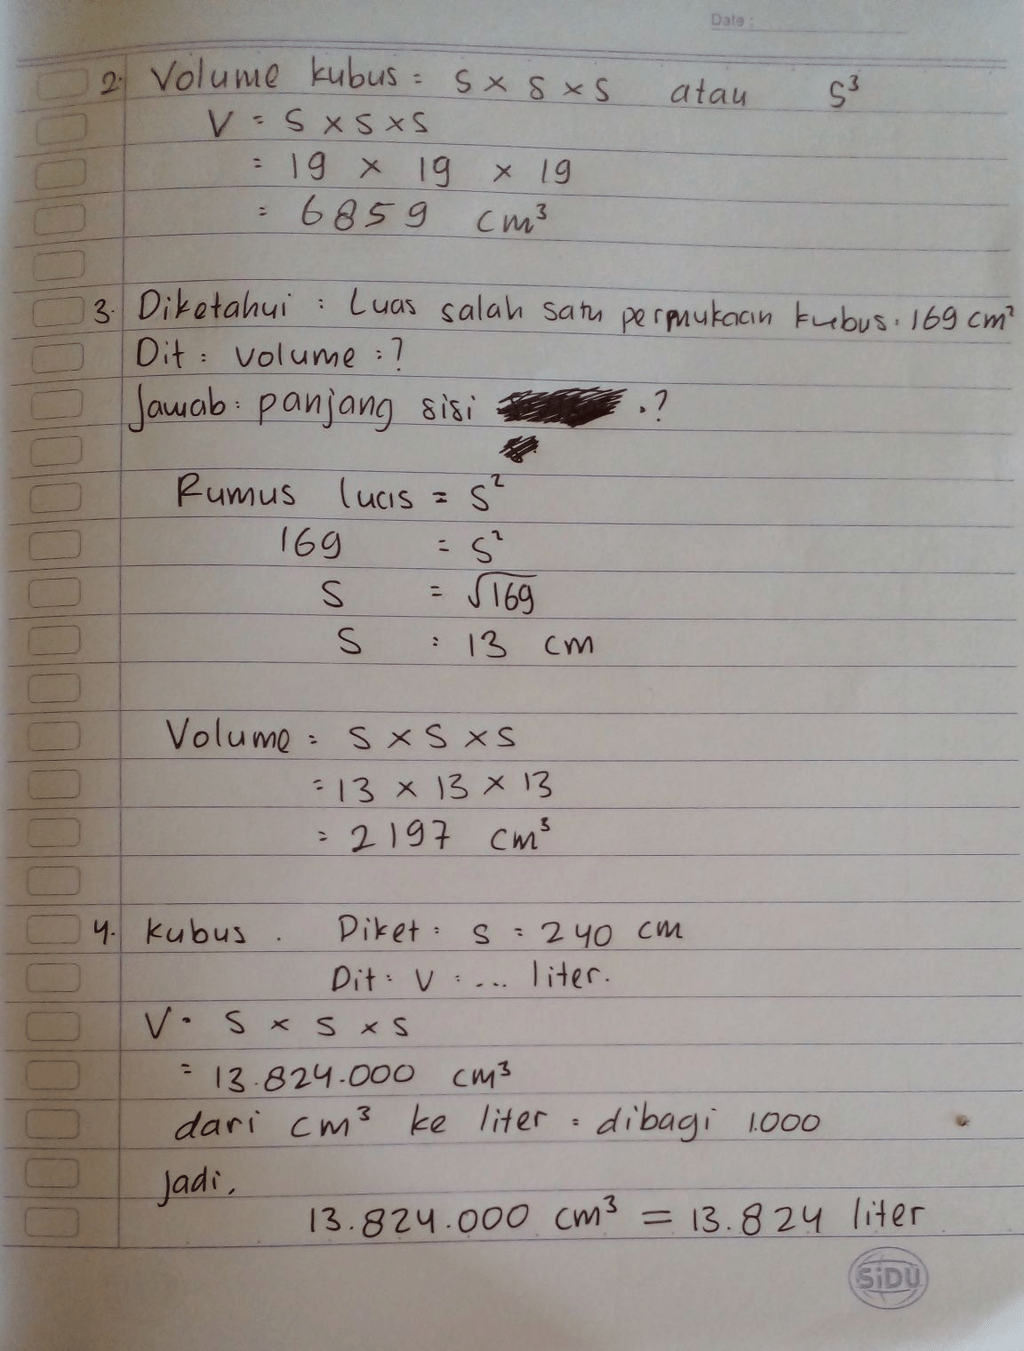 Date :
2. Volume kubus = s × s × s atau s³
V = s × s × s
= 19 × 19 × 19
= 6859 cm³
3. Diketahui : Luas salah satu permukaan kubus = 169 cm²
Dit : volume = ?
Jawab : panjang sisi = ?
Rumus luas = s²
169 = s²
s = √169
s = 13 cm
Volume = s × s × s
= 13 × 13 × 13
= 2197 cm³
4. kubus . Diket : s = 240 cm
Dit : V = ... liter.
V = s × s × s
= 13.824.000 cm³
dari cm³ ke liter = dibagi 1.000
jadi,
13.824.000 cm³ = 13.824 liter
SiDU